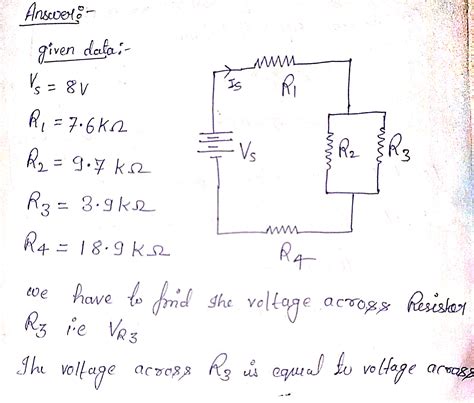 Answer:-
given data:-
Vs = 8V
R1 = 7.6kΩ
R2 = 9.7 kΩ
R3 = 3.9kΩ
R4 = 18.9kΩ
Is
R1
Vs
R2
R3
R4
we have to find the voltage across Resistor
R3 i.e VR3
The voltage across R3 is equal to voltage across